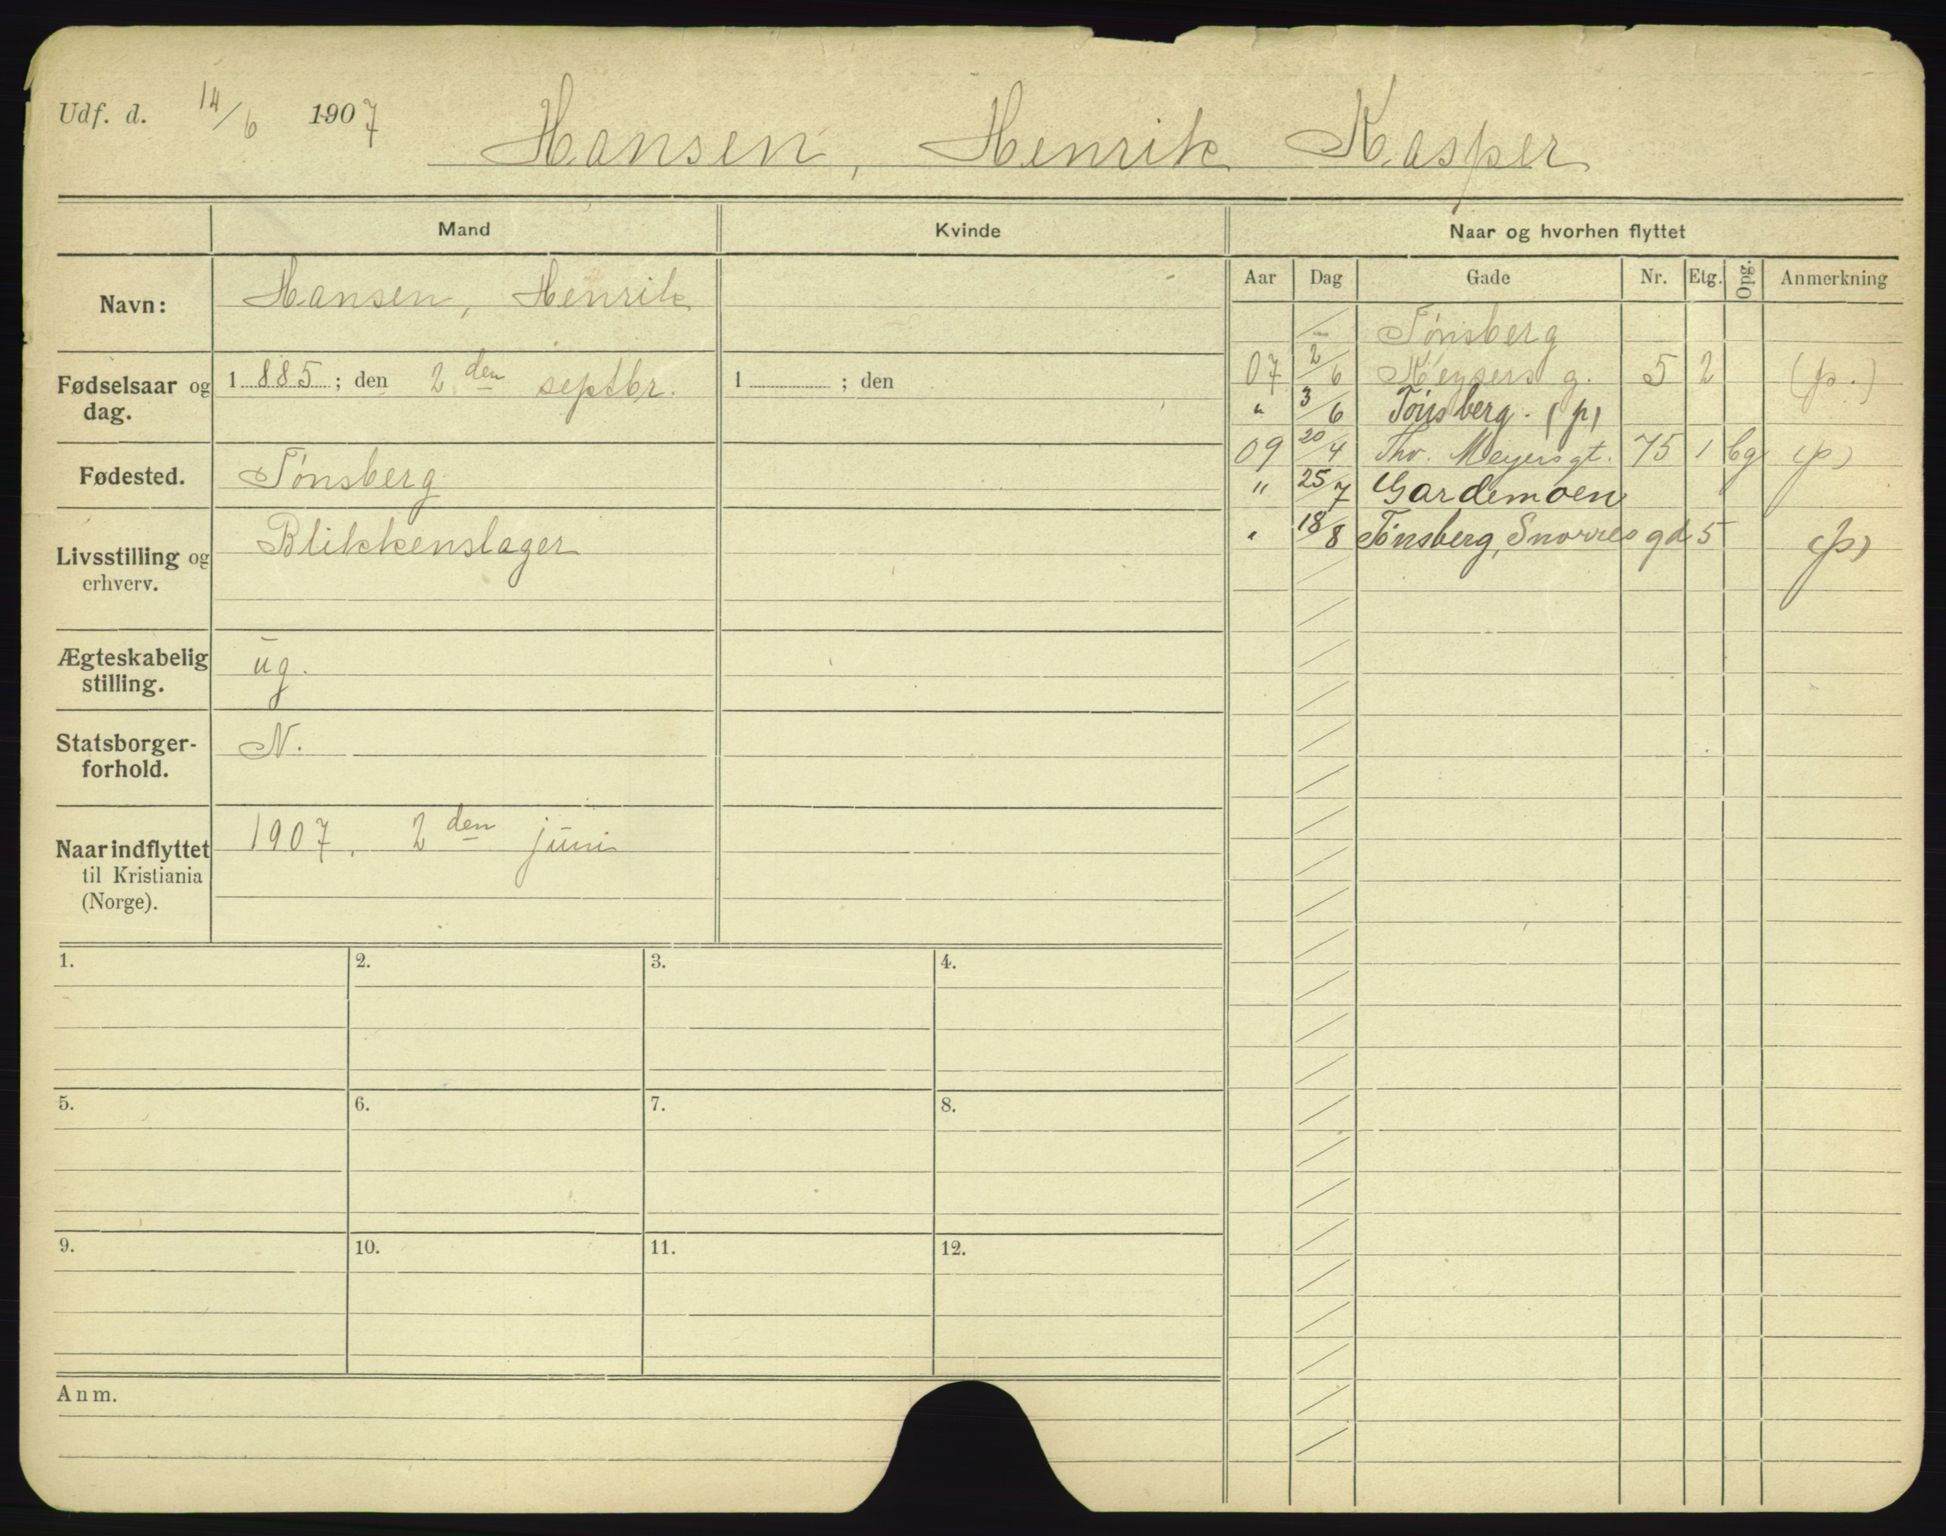 Udf. d. 14/6 1907
Hansen, Henrik Kasper
Mand Kvinde Naar og hvorhen flyttet
Aar Dag Gade Nr. Etg. Opg. Anmerkning
Navn: Hansen, Henrik
Fødselsaar og dag. 1885; den 2den septbr. 1 ; den
Fødested. Tønsberg
Livsstilling og erhverv. Blikkenslager
Ægteskabelig stilling. ug.
Statsborger-
forhold. N.
Naar indflyttet til Kristiania (Norge). 1907. 2den juni
— Tønsberg
07 2/6 Keysers g. 5 2 (p.)
" 3/6 Tønsberg. (p)
09 20/4 Thv. Meyers gt. 75 1 (p)
" 25/7 Gardemoen
" 18/8 Tønsberg, Snorres gd 5 (p)
1. 2. 3. 4.
5. 6. 7. 8.
9. 10. 11. 12.
Anm.